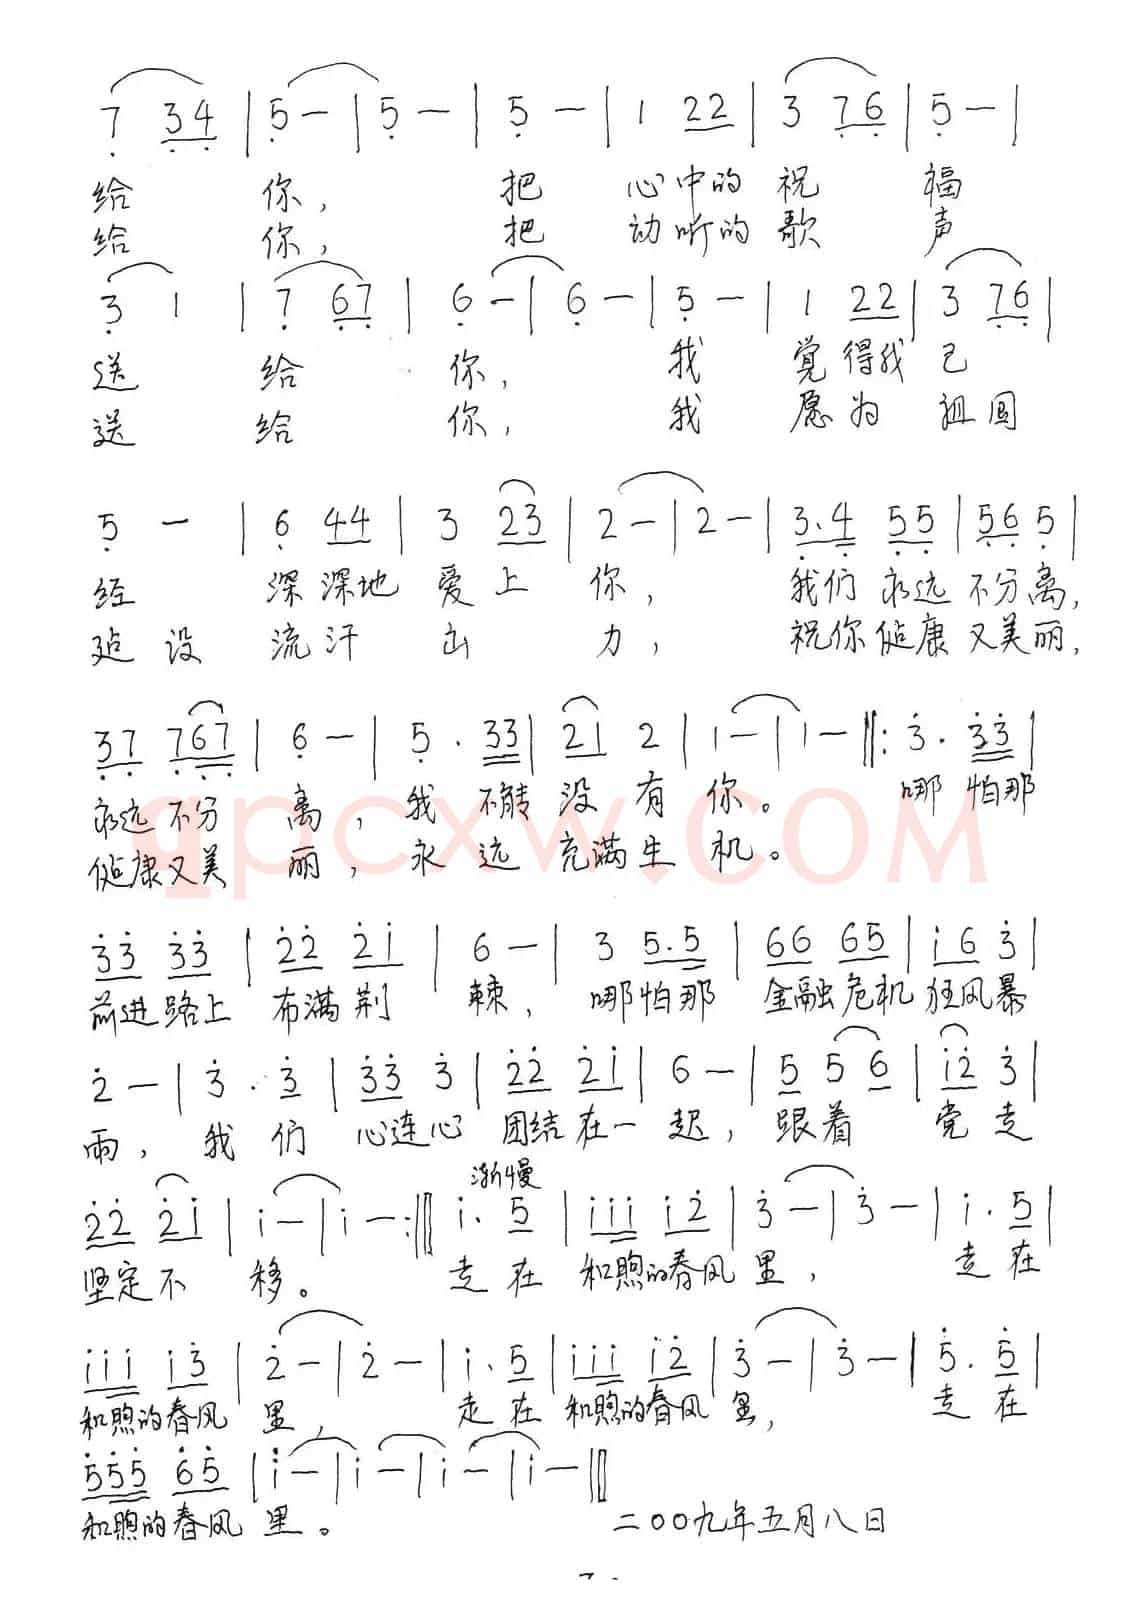 7̣ 3̣4̣ | 5̣ — | 5̣ — | 5̣ — | 1 22 | 3 7̣6̣ | 5̣ — |
给 你, 把 心中的 祝 福
给 你, 把 动听的 歌 声
3̣ 1 | 7̣ 6̣7̣ | 6̣ — | 6̣ — | 5̣ — | 1 22 | 3 7̣6̣ |
送 给 你, 我 觉得我 已
送 给 你, 我 愿为 祖国
5̣ — | 6̣ 44 | 3 23 | 2 — | 2 — | 3̣.4̣ 5̣5̣ | 5̣6̣ 5̣ |
经 深深地 爱上 你, 我们永远不分离,
建设 流汗 出 力, 祝你健康又美丽,
3̣7̣ 7̣6̣7̣ | 6̣ — | 5̣ . 33 | 21 2 | 1 — | 1 — ‖: 3̇ . 3̇3̇ |
永远不分 离, 我 不能 没有你。 哪 怕那
健康又美 丽, 永远充满生机。
qpcxw.COM
3̇3̇ 3̇3̇ | 2̇2̇ 2̇1̇ | 6 — | 3 5.5 | 66 65 | 1̇6 3̇ |
前进路上 布满荆 棘, 哪怕那 金融危机 狂风暴
2̇ — | 3̇ . 3̇ | 3̇3̇ 3̇ | 2̇2̇ 2̇1̇ | 6 — | 5 5 6 | 1̇2̇ 3̇ |
雨, 我们 心连心 团结在一起, 跟着 党走
渐慢
2̇2̇ 2̇1̇ | 1̇ — | 1̇ — :‖ 1̇. 5 | 1̇1̇1̇ 1̇2̇ | 3̇ — | 3̇ — | 1̇ . 5 |
坚定不 移。 走在 和煦的春风里, 走在
1̇1̇1̇ 1̇3̇ | 2̇ — | 2̇ — | 1̇. 5 | 1̇1̇1̇ 1̇2̇ | 3̇ — | 3̇ — | 5̇. 5̇ |
和煦的春风 里, 走在 和煦的春风 里, 走在
5̇5̇5̇ 6̇5̇ | 1̇ — | 1̇ — | 1̇ — | 1̇ — ‖
和煦的春风里。 二〇〇九年五月八日